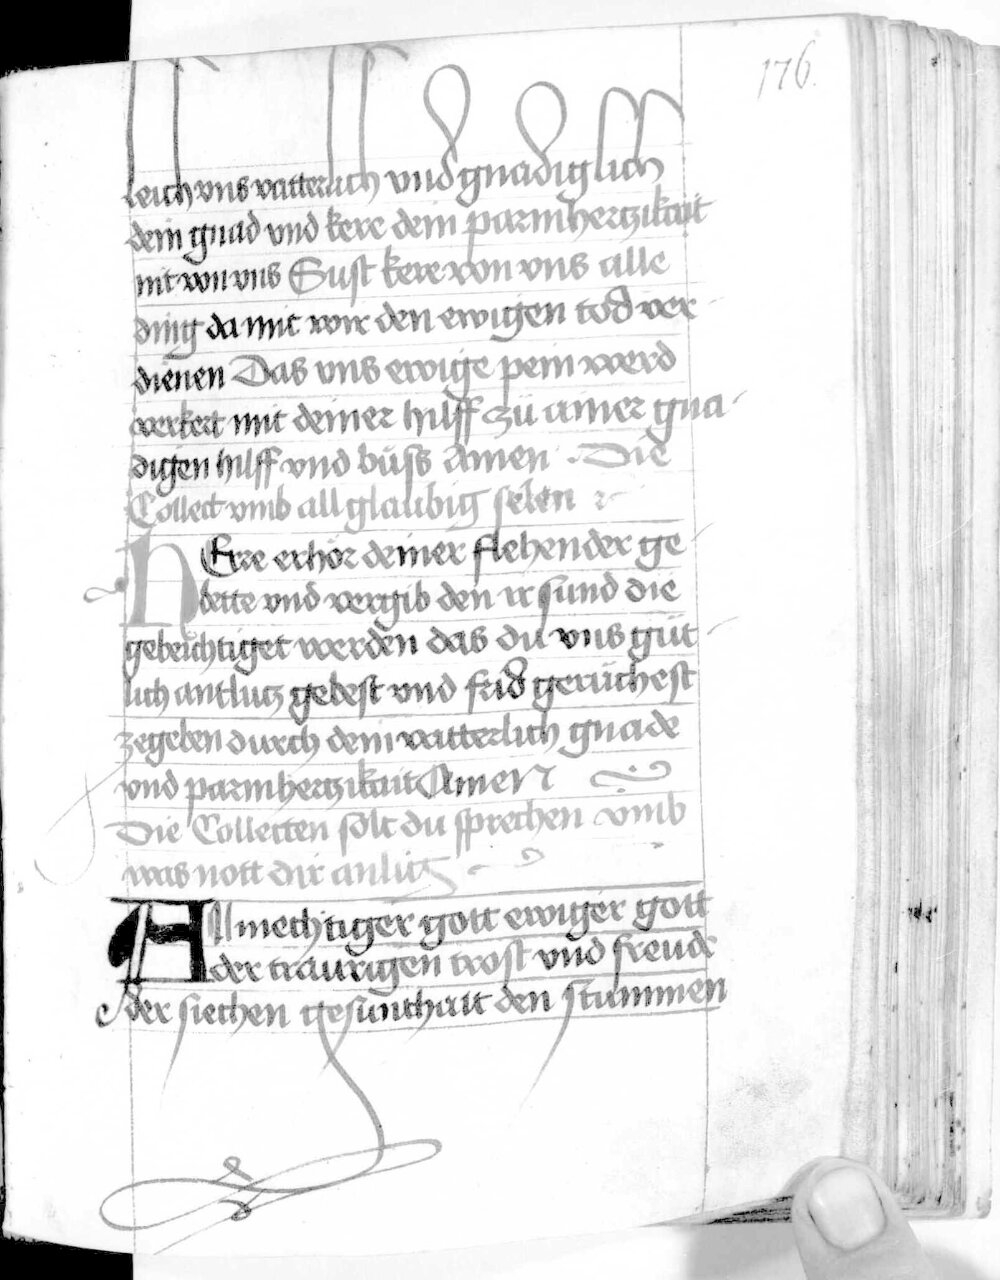 176.
leich vns vatterlich vnd gnadiglich
dein gnad vnd kere dein parmhertzikait
nit von vns Sust kere von vns alle
ding da mit wir den ewigen tod ver
dienen Das vns ewige pein werd
verkert mit deiner hilff zü ainer gna
digen hilff vnd büss Amen. Die
Collect vmb all glaubig selen
HErre erhör deiner flehender ge
bette vnd vergib den ir sünd die
gebeichtiget werden das du vns güt
lich antlutz gebest vnd frid gerüchest
zegeben durch dein vatterlich gnade
vnd parmhertzikait Amen
Die Collecten solt du sprechen vmb
was nott dir anligt
Allmechtiger gott ewiger gott
der traurigen trost vnd freude
der siechen gesunthait den stummen